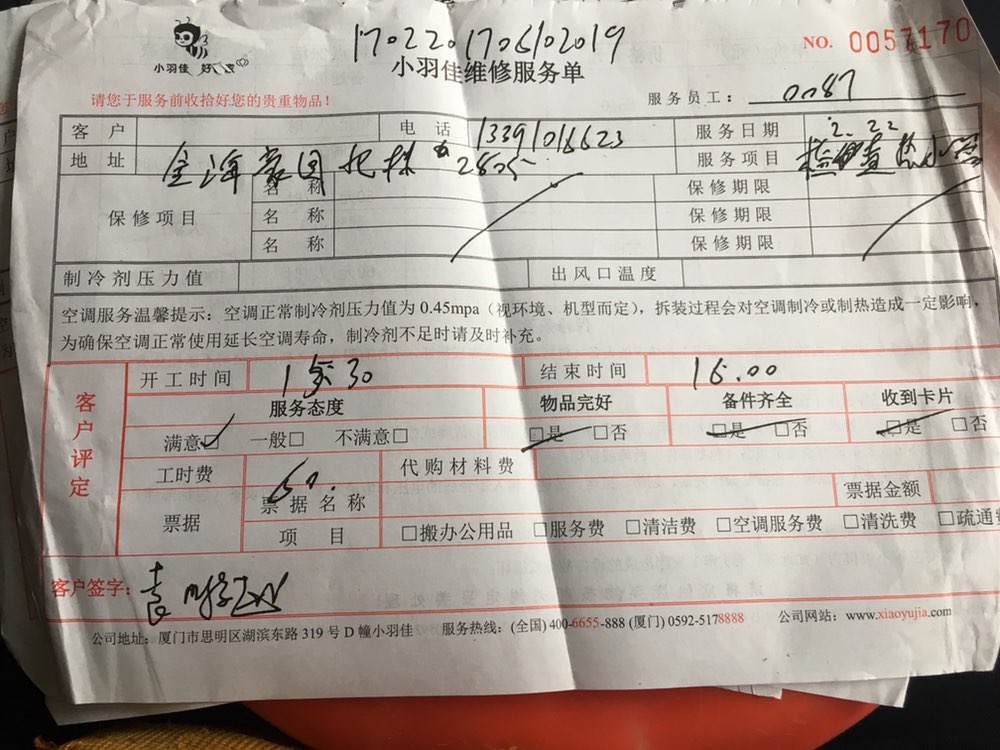 小羽佳 好
1702201706102019
NO. 0057170
小羽佳维修服务单
请您于服务前收拾好您的贵重物品！
服务员工： 0087
客户 电话 13391016623 服务日期 2.22
地址 金海豪园 2805 服务项目 检查
保修项目 名称 保修期限
名称 保修期限
名称 保修期限
制冷剂压力值 出风口温度
空调服务温馨提示：空调正常制冷剂压力值为 0.45mpa（视环境、机型而定），拆装过程会对空调制冷或制热造成一定影响，
为确保空调正常使用延长空调寿命，制冷剂不足时请及时补充。
客户评定
开工时间 15 30 结束时间 16.00
服务态度 物品完好 备件齐全 收到卡片
满意☑ 一般□ 不满意□ □是 □否 □是 □否 □是 □否
工时费 60. 代购材料费
票据 票据名称 票据金额
项目 □搬办公用品 □服务费 □清洁费 □空调服务费 □清洗费 □疏通费
客户签字： 袁
公司地址：厦门市思明区湖滨东路 319 号 D 幢小羽佳 服务热线：(全国) 400-6655-888 (厦门) 0592-5178888 公司网站：www.xiaoyujia.com